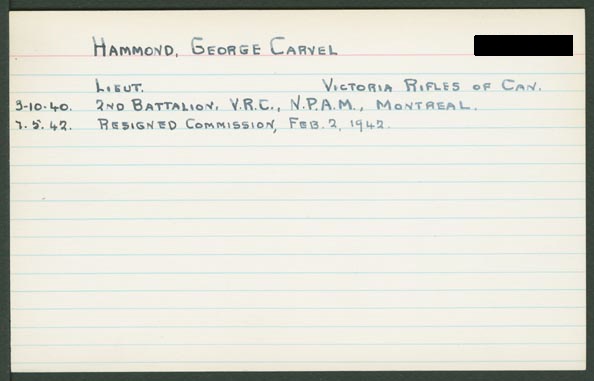 HAMMOND, GEORGE CARVEL
LIEUT. VICTORIA RIFLES OF CAN.
3-10-40. 2ND BATTALION, V.R.C., N.P.A.M., MONTREAL.
7.5.42. RESIGNED COMMISSION, FEB. 2, 1942.